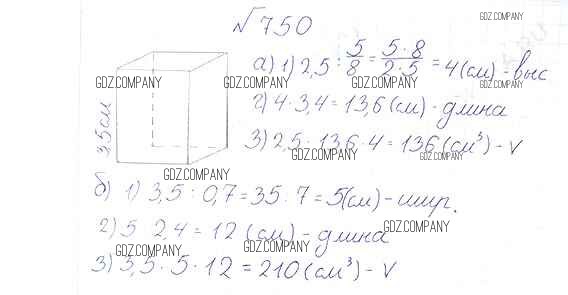 №750
GDZ.COMPANY
а) 1) 2,5 : 5/8 = 5·8/2·5 = 4 (см) - выс
GDZ.COMPANY GDZ.COMPANY GDZ.COMPANY
2) 4·3,4 = 13,6 (см) - длина
3,5см
3) 2,5·13,6·4 = 136 (см³) - V
GDZ.COMPANY GDZ.COMPANY
GDZ.COMPANY
б) 1) 3,5 : 0,7 = 35 : 7 = 5 (см) - шир.
2) 5 · 2,4 = 12 (см) - длина
GDZ.COMPANY
GDZ.COMPANY
3) 3,5 · 5 · 12 = 210 (см³) - V
GDZ.COMPANY